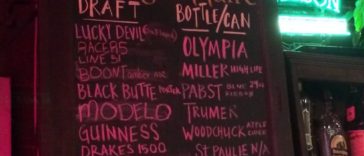 DRAFT
LUCKY DEVIL
RACER5
LINE 51
BOONT amber ALE
BLACK BUTTE PORTER
MODELO
GUINNESS
DRAKES 1500
BOTTLE/CAN
OLYMPIA
MILLER HIGH LIFE
PABST BLUE RIBBON
TRUMER
WOODCHUCK APPLE CIDER
ST PAULIE N/A